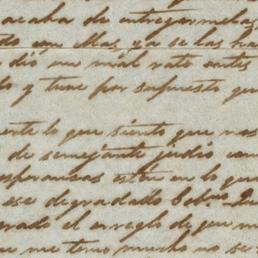 acaba de entregarmelas,
do con Mas, ya se las ha
dio un mal rato antes
do y tuve por supuesto que
ente lo que siento que nos
de semejante judio con
esperanzas estar en lo que
ese degradado
rado el arreglo de que m
que me temo mucho no se